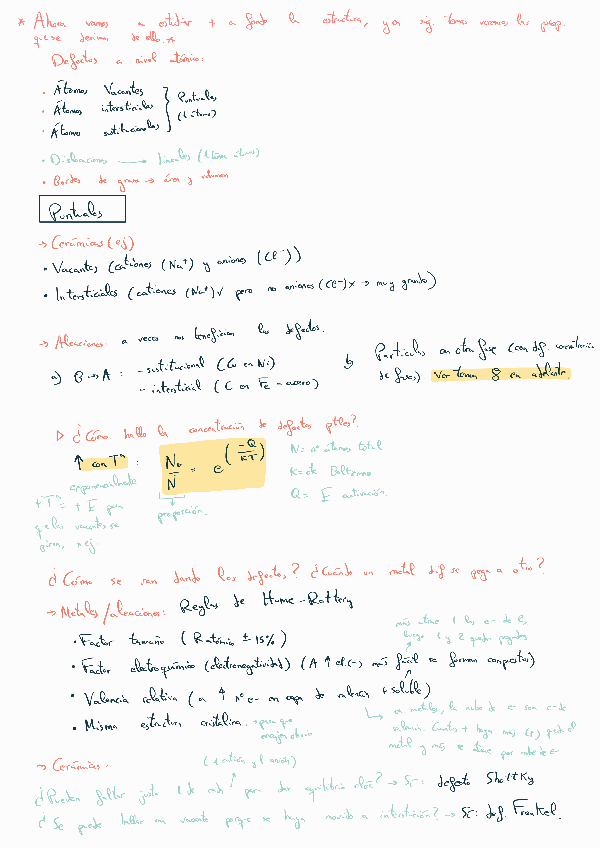 * Ahora vamos a estudiar + a fondo la estructura, y en sig. temas veremos las prop.
que se derivan de ello. *
Defectos a nivel atómico:
• Átomos Vacantes
• Átomos intersticiales } Puntuales
• Átomo sustitucionales (1 átomo)
• Dislocaciones → lineales (1 línea átomos)
• Bordes de grano → área y volumen
Puntuales
→ Cerámicas (ej)
• Vacantes (cationes (Na⁺) y aniones (Cl⁻))
• Intersticiales (cationes (Na⁺)✓ pero no aniones (Cl⁻)x → muy grande)
→ Aleaciones: a veces nos benefician los defectos.
a) B→A : - sustitucional (Cu en Ni)
- intersticial (C en Fe - acero)
b) Partículas en otra fase (con dif.
de fases) Ver temas 8 en adelante.
▷ ¿Cómo hallo la concentración de defectos ptles?
↑ con Tª : Nv/N = e^(-Q/KT)
exponencialmente
proporción.
N = nº átomos total
K = cte Boltzmann
Q = E activación.
+ Tª = + E para
que las vacantes se
¿Cómo se van dando los defectos? ¿Cuándo un metal dif se pega a otro?
→ Metales/aleaciones: Reglas de Hume-Rothery
• Factor tamaño (R atómico ± 15%)
• Factor electroquímico (electronegatividad) (A ↑ el.(-) más fácil se forman compuestos)
más atrae 1 los e- de 2,
luego 1 y 2 quedan pegados
• Valencia relativa (a ↑ nº e- en capa de valencia + soluble)
• Misma estructura cristalina. → para que
encajen
↳ en metales, la nube de e- son e- de
valencia. Cuantos + haya más
metal y más se atrae por nube de e-
→ Cerámicas.
(1 catión y 1 anión)
¿Pueden faltar justo 1 de cada para dar equilibrio eléc? → Sí: defecto Shottky
¿Se puede hallar una vacante porque se haya movido a intersticial? → Sí: def. Frenkel.